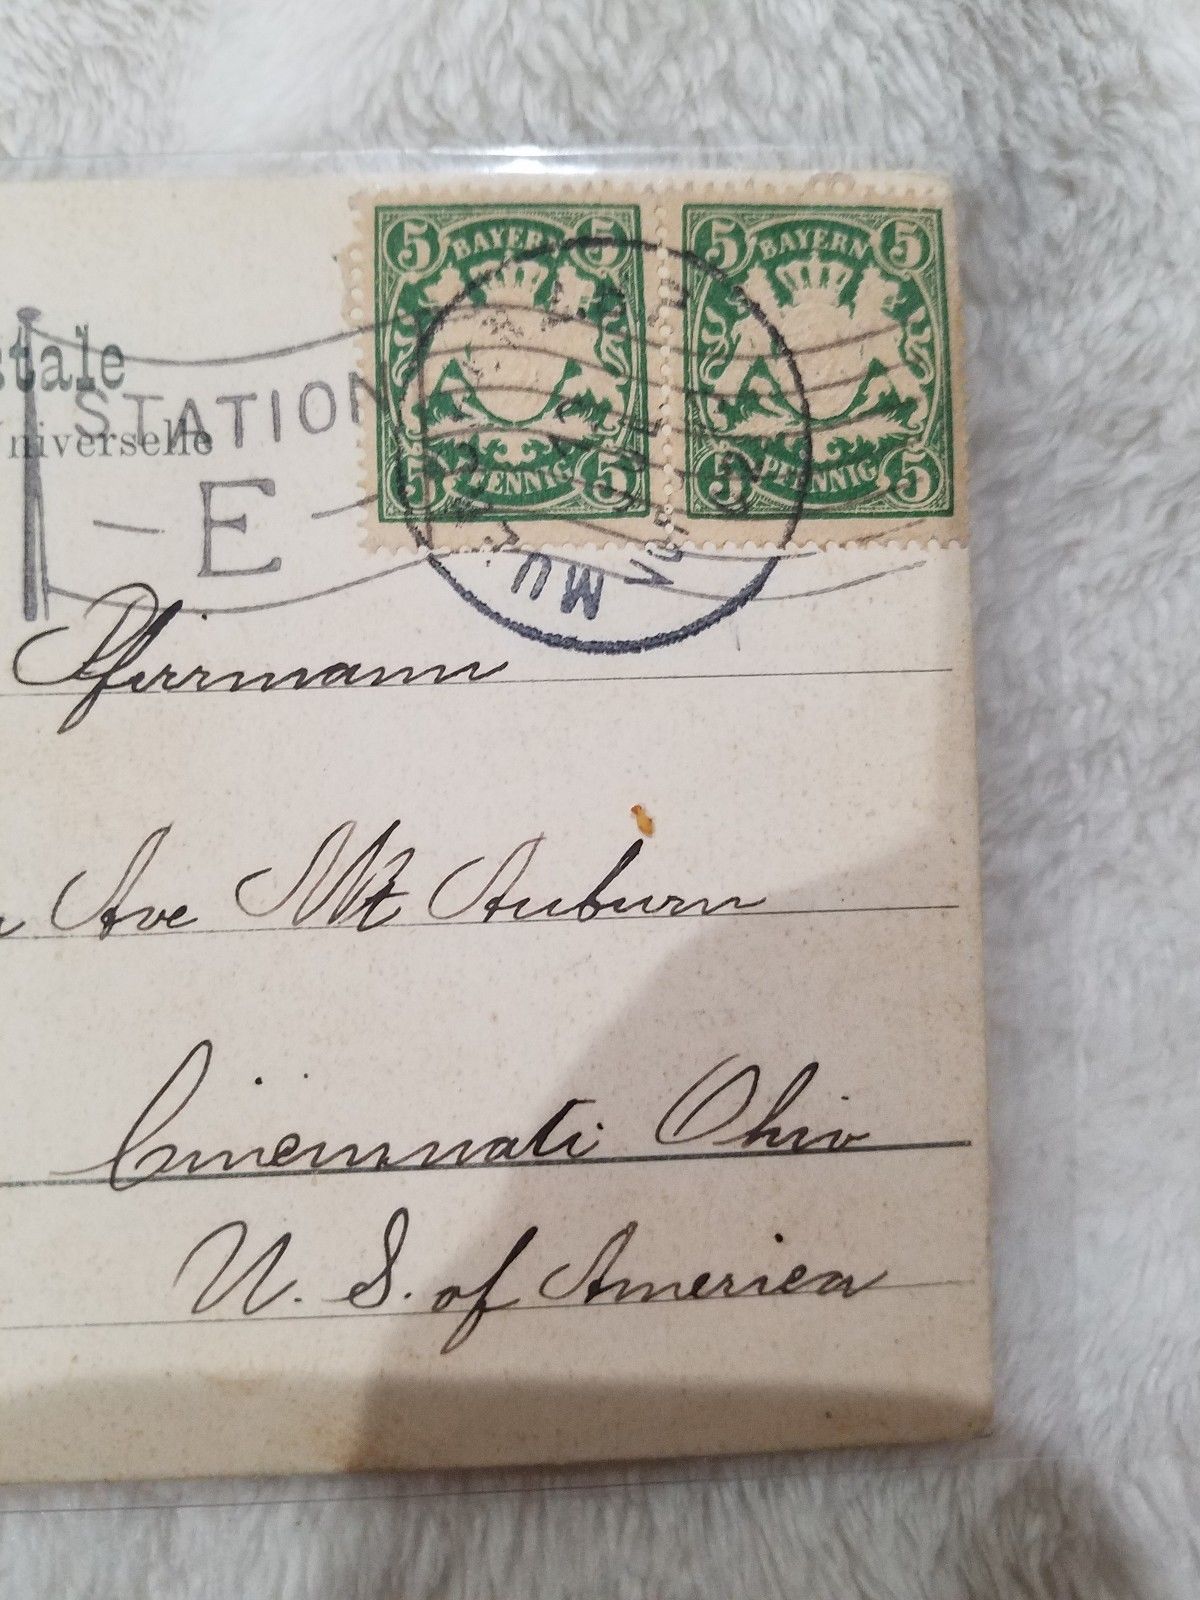 5 BAYERN 5 5 BAYERN 5
stale
STATION
Universelle
5 PFENNIG 5 5 PFENNIG 5
E
MU
Pfirrmann
Ave Mt Auburn
Cincinnati Ohio
U. S. of America